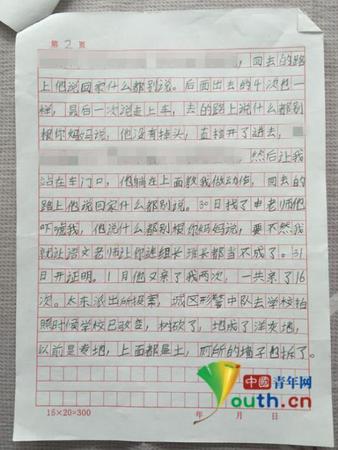 第2页
回去的路
上他说回家什么都别说。后面出去的4次也一
样，最后一次说上车，去的路上说什么都别
跟你妈妈说，他没有掉头，直接开了进去，
然后让我
站在车门口，他躺在上面教我做动作，回去的
路上他说回家什么都别说。30日找了申老师他
吓唬我，他说什么都别跟你妈妈说，要不然我
就让语文老师让你连组长 都当不成了。31
日开证明。1月他又亲了我两次，一共亲了16
次。太东派出所报案，城区刑警中队去学校拍
照时候学校已改变，树砍了，地成了洋灰地，
以前是麦地，上面都是土，厕所的墙子也拆了。
15×20=300
年 月 日
中國青年网
Youth.cn